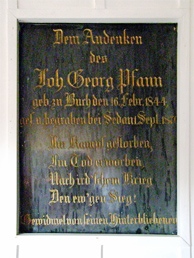 Dem Andenken
des
Joh. Georg Pfann
geb. zu Buch den 16. Febr. 1844
gef. u. begraben bei Sedan 1. Sept. 1870
Im Kampf gestorben,
Im Tod erworben
Nach ird'schem Krieg
Den ew'gen Sieg!
Gewidmet von seinen Hinterbliebenen